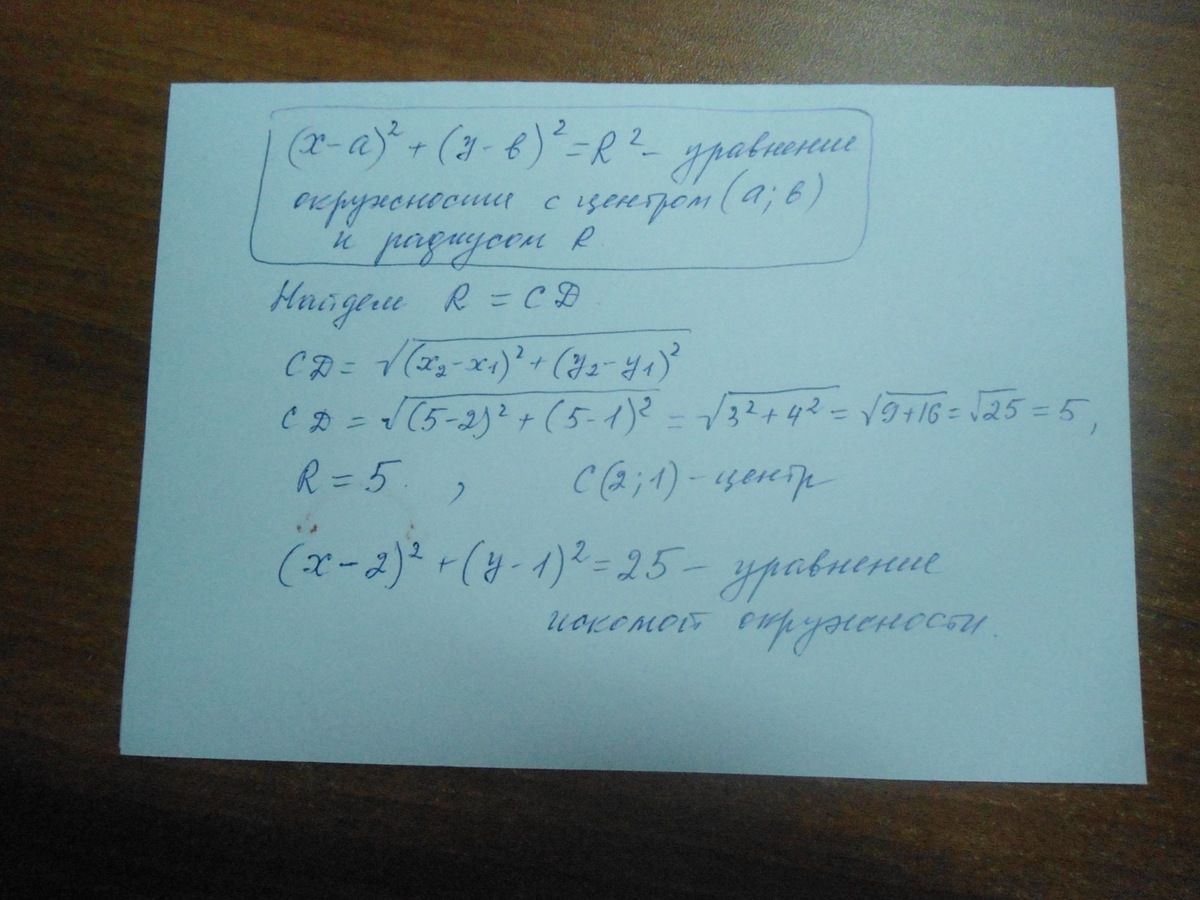 (x-a)² + (y-в)² = R² - уравнение
окружности с центром (a; в)
и радиусом R
Найдем R = CD
CD = √((x₂-x₁)² + (y₂-y₁)²)
CD = √((5-2)² + (5-1)²) = √(3²+4²) = √(9+16) = √25 = 5,
R = 5 , C(2;1) - центр
(x-2)² + (y-1)² = 25 - уравнение
искомой окружности.